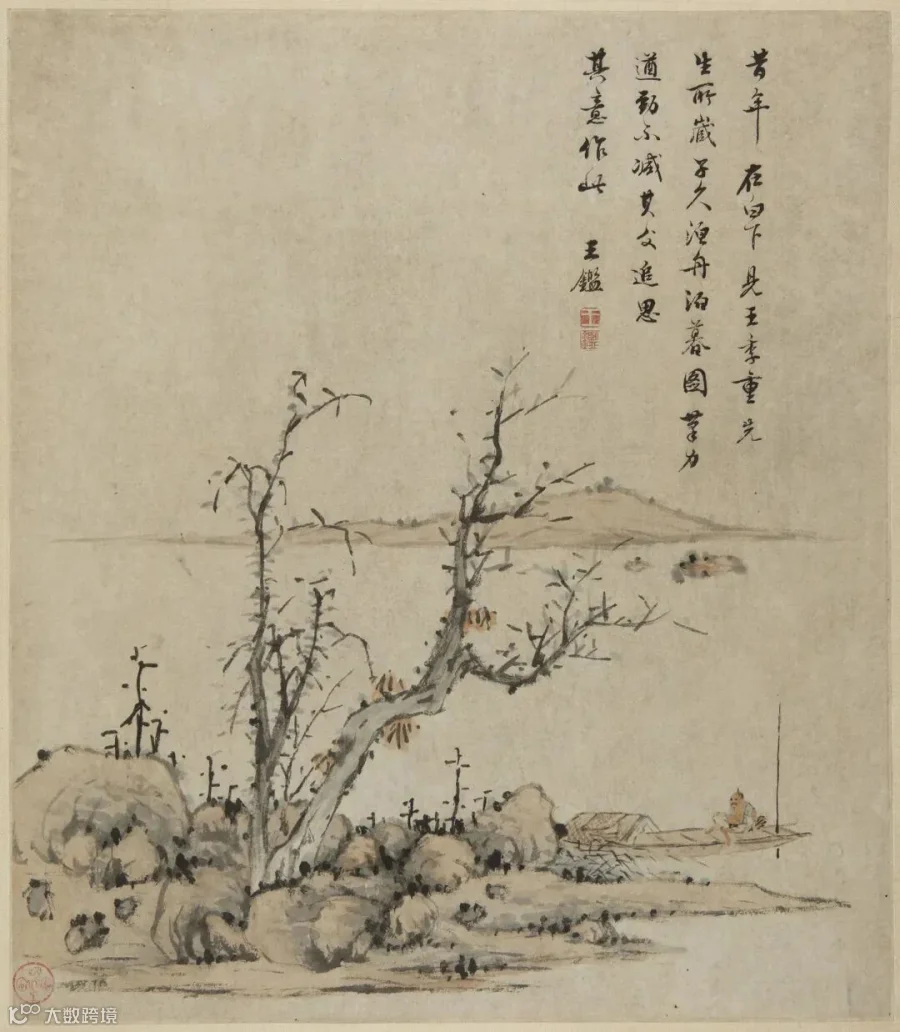 昔年在白下見王季重先
生所藏子久漁舟泊暮圖筆力
遒勁不減其父追思
其意作此 王鑑
大数跨境